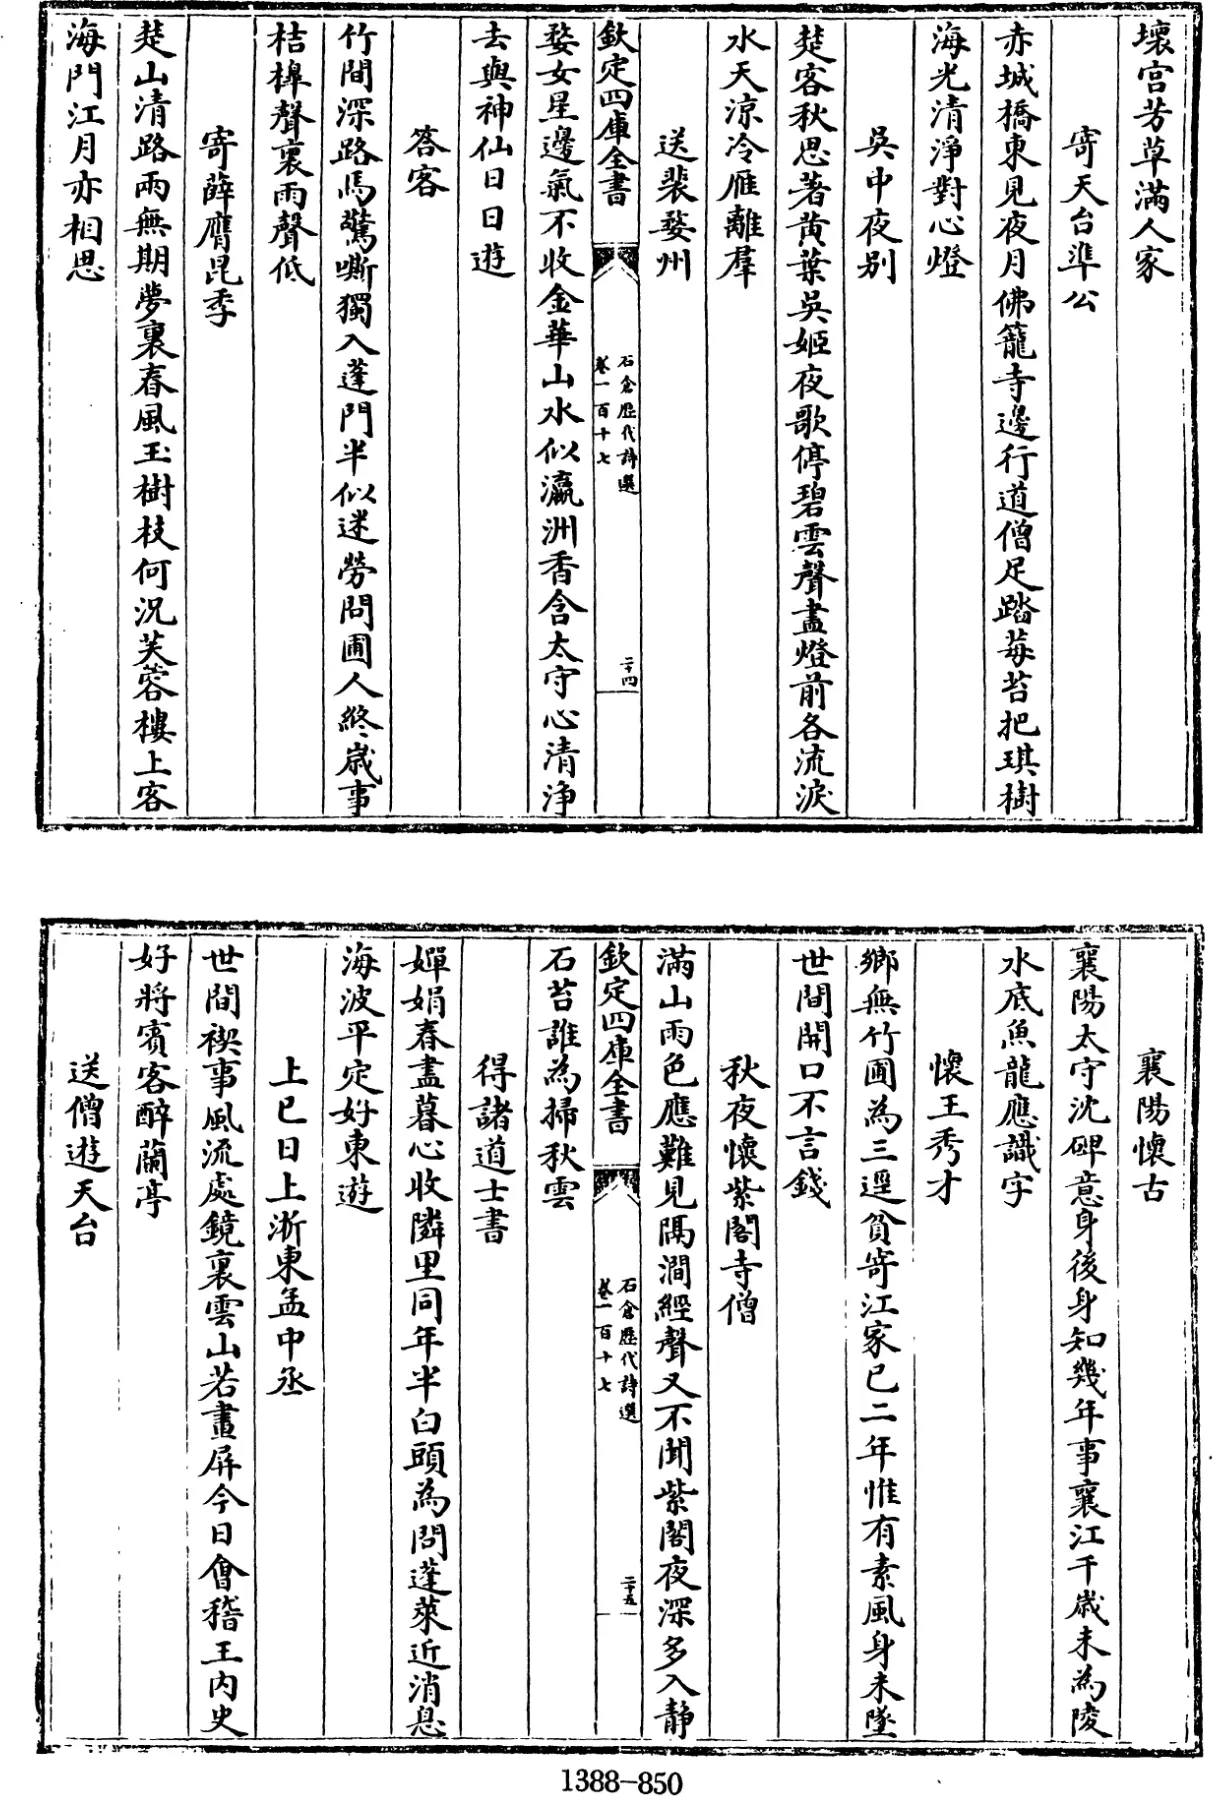 壞宫芳草滿人家
寄天台準公
赤城橋東見夜月佛籠寺邊行道僧足踏莓苔把琪樹
海光清淨對心燈
吳中夜别
楚客秋思著黄葉吳姬夜歌停碧雲聲盡燈前各流淚
水天涼冷雁離羣
送裴婺州
欽定四庫全書
石倉歷代詩選
卷一百十七
二十四
婺女星邊氣不收金華山水似瀛洲香含太守心清浄
去與神仙日日遊
答客
竹間深路馬驚嘶獨入蓬門半似迷勞問圃人終歲事
桔槹聲裏雨聲低
寄薛膺昆季
楚山清路兩無期夢裏春風玉樹枝何況芙蓉樓上客
海門江月亦相思
襄陽懐古
襄陽太守沈碑意身後身知幾年事襄江千歲未為陵
水底魚龍應識字
懷王秀才
鄉無竹圃為三逕貧寄江家已二年惟有素風身未墜
世間開口不言錢
秋夜懐紫閣寺僧
滿山雨色應難見隔澗經聲又不聞紫閣夜深多入靜
石苔誰為掃秋雲
欽定四庫全書
石倉歷代詩選
卷一百十七
二十五
得諸道士書
嬋娟春盡暮心收隣里同年半白頭為問蓬萊近消息
海波平定好東遊
上巳日上浙東孟中丞
世間禊事風流處鏡裏雲山若畫屏今日會稽王内史
好將賓客醉蘭亭
送僧遊天台
1388-850